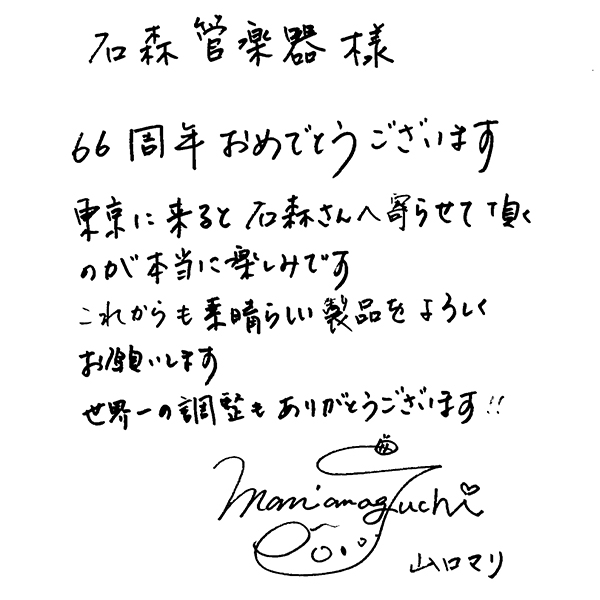 石森管楽器 様
66周年 おめでとうございます
東京に来ると 石森さんへ寄らせて頂く
のが本当に楽しみです
これからも素晴らしい製品をよろしく
お願いします
世界一の調整も ありがとうございます!!
Mari Yamaguchi
山口マリ